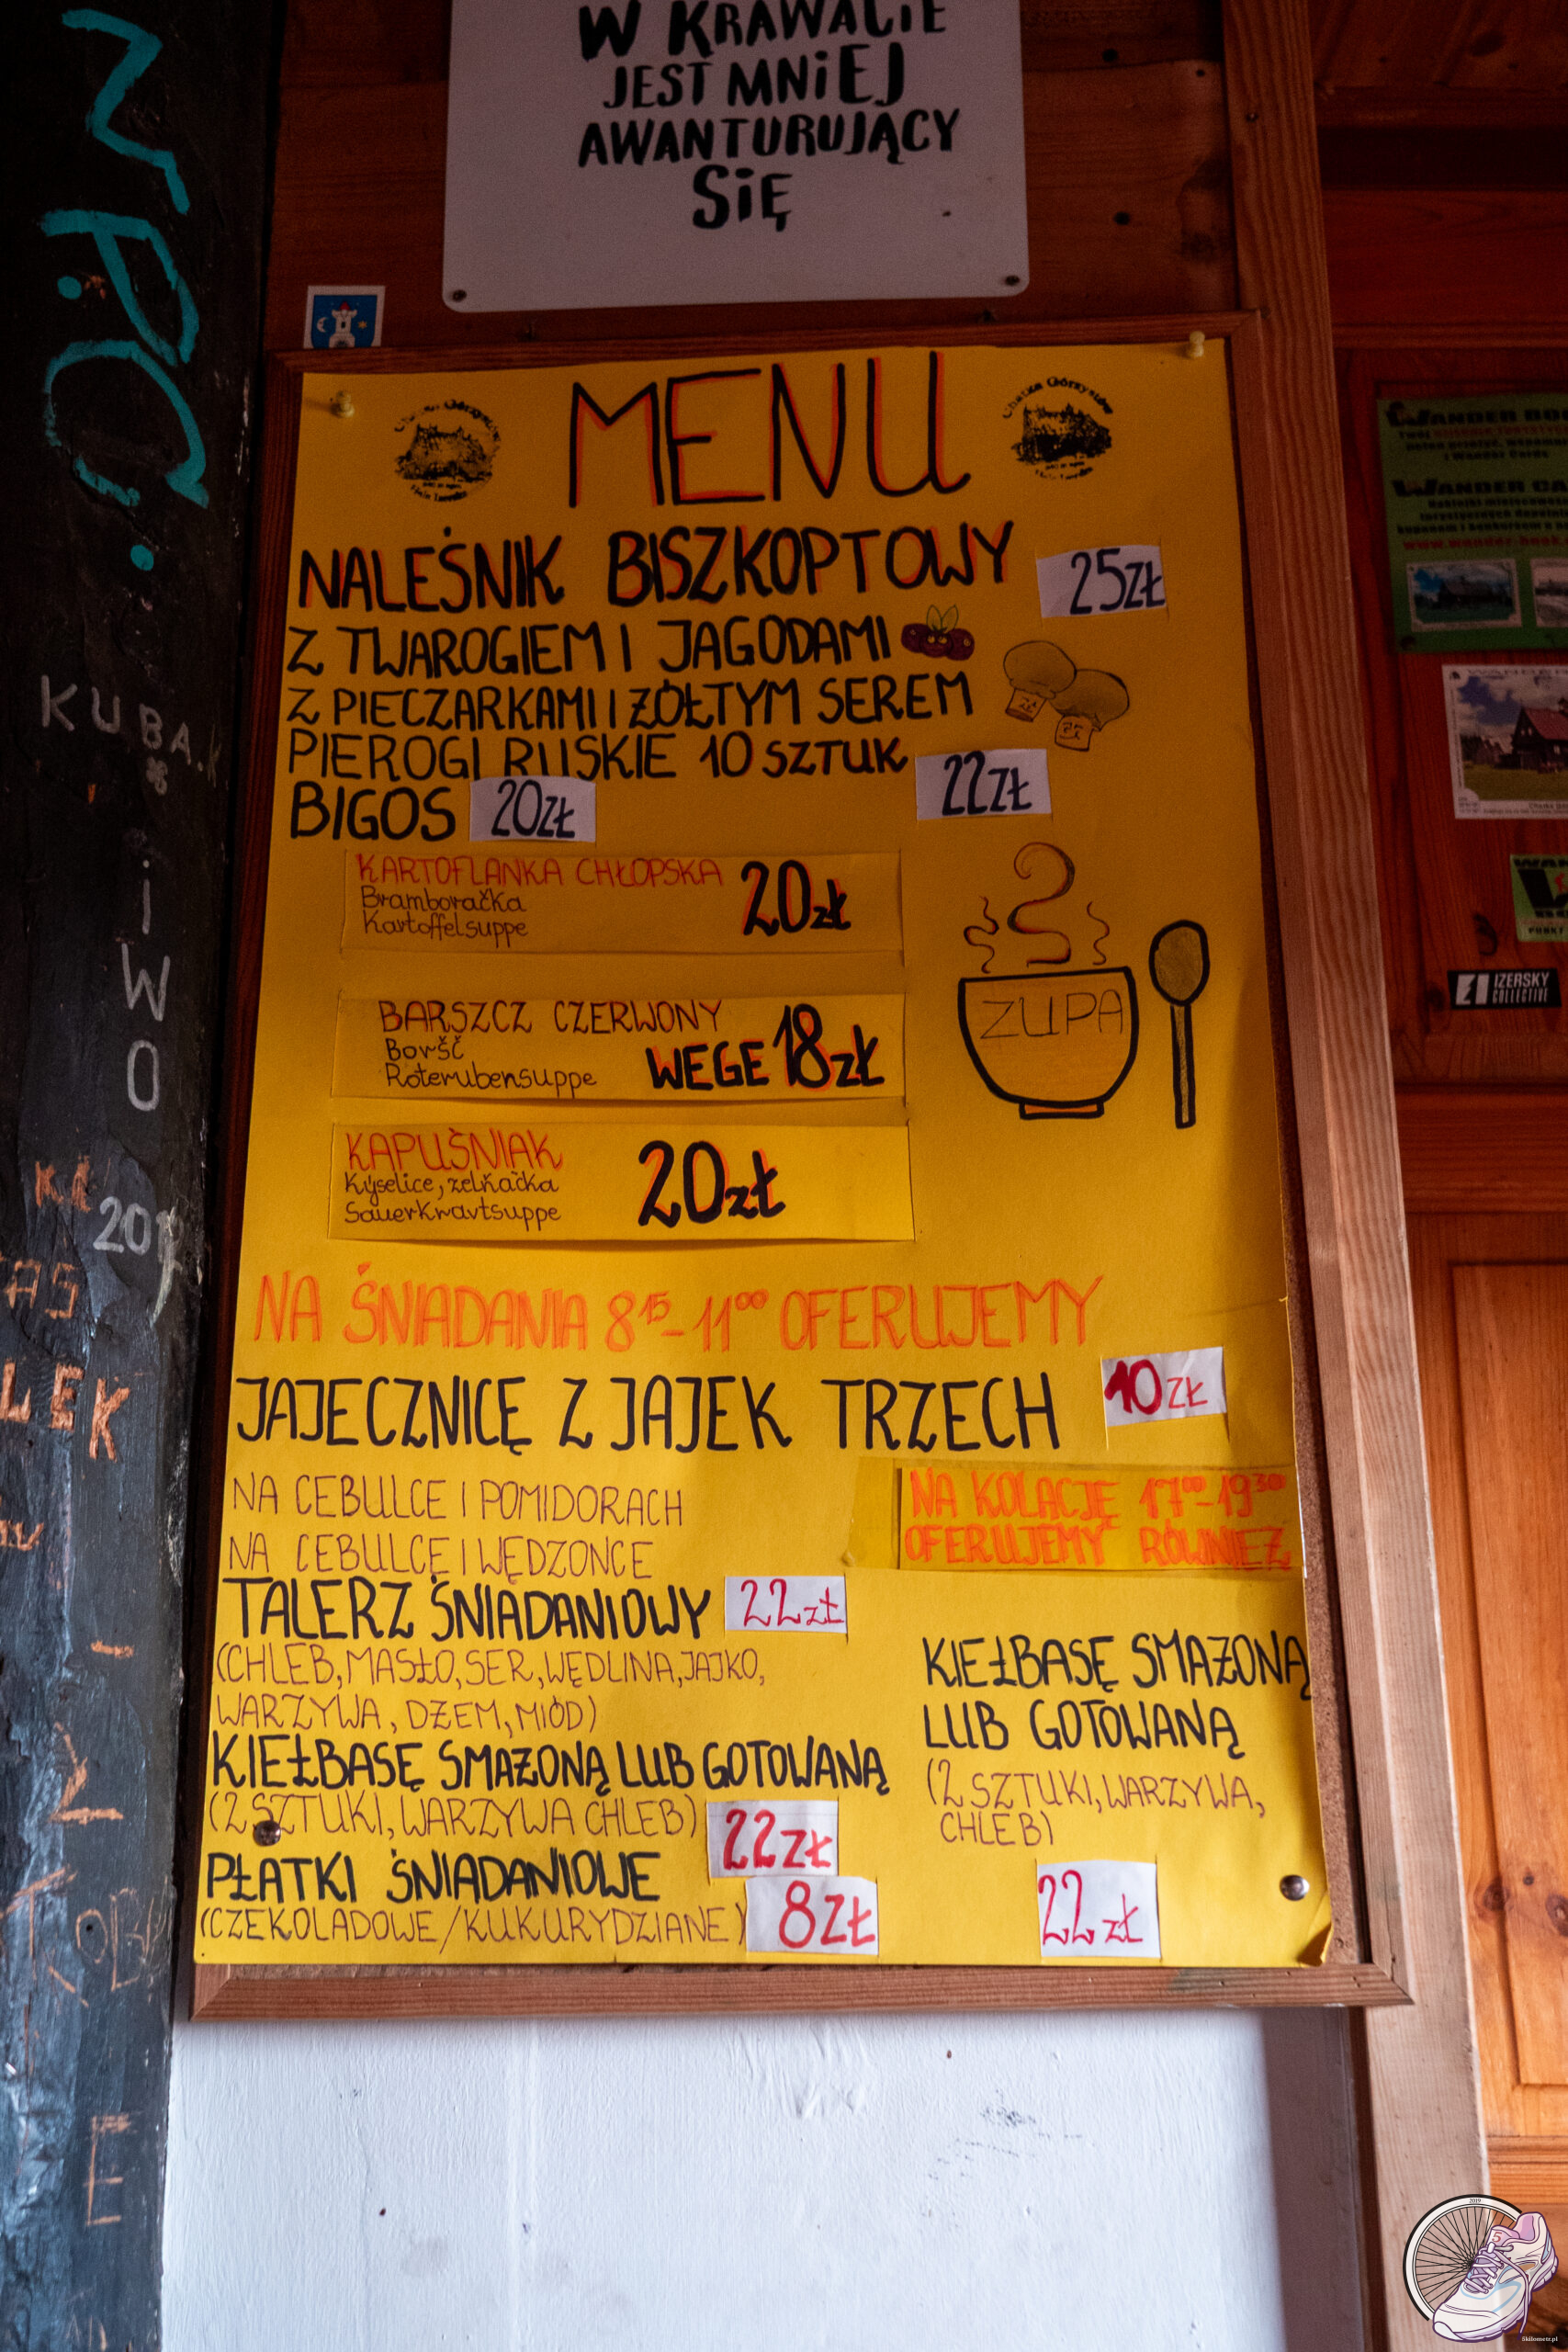 W KRAWACIE
JEST MNIEJ
AWANTURUJĄCY
SIĘ
MENU
Chatza Górzystów
NALEŚNIK BISZKOPTOWY 25ZŁ
Z TWAROGIEM I JAGODAMI
Z PIECZARKAMI I ŻÓŁTYM SEREM
PIEROGI RUSKIE 10 SZTUK 22ZŁ
BIGOS 20ZŁ
KARTOFLANKA CHŁOPSKA 20zł
Bramboračka
Kartoffelsuppe
BARSZCZ CZERWONY
Boršč WEGE 18zł
Roterubensuppe
ZUPA
KAPUŚNIAK 20zł
Kyselice, zelňačka
Sauerkrautsuppe
NA ŚNIADANIA 8¹⁵-11⁰⁰ OFERUJEMY
JAJECZNICĘ Z JAJEK TRZECH 10 ZŁ
NA CEBULCE I POMIDORACH
NA CEBULCE I WĘDZONCE
TALERZ ŚNIADANIOWY 22zł
(CHLEB, MASŁO, SER, WĘDLINA, JAJKO,
WARZYWA, DŻEM, MIÓD)
KIEŁBASĘ SMAŻONĄ LUB GOTOWANĄ
(2 SZTUKI, WARZYWA CHLEB) 22ZŁ
PŁATKI ŚNIADANIOWE
(CZEKOLADOWE/KUKURYDZIANE) 8ZŁ
NA KOLACJĘ 17⁰⁰-19³⁰
OFERUJEMY RÓWNIEŻ
KIEŁBASĘ SMAŻONĄ
LUB GOTOWANĄ
(2 SZTUKI, WARZYWA,
CHLEB)
22 zł
KUBA
IWO
LEK
WANDER
WANDER
www.wander-book
IZERSKY
COLLECTIVE
2019
5kilometr.pl